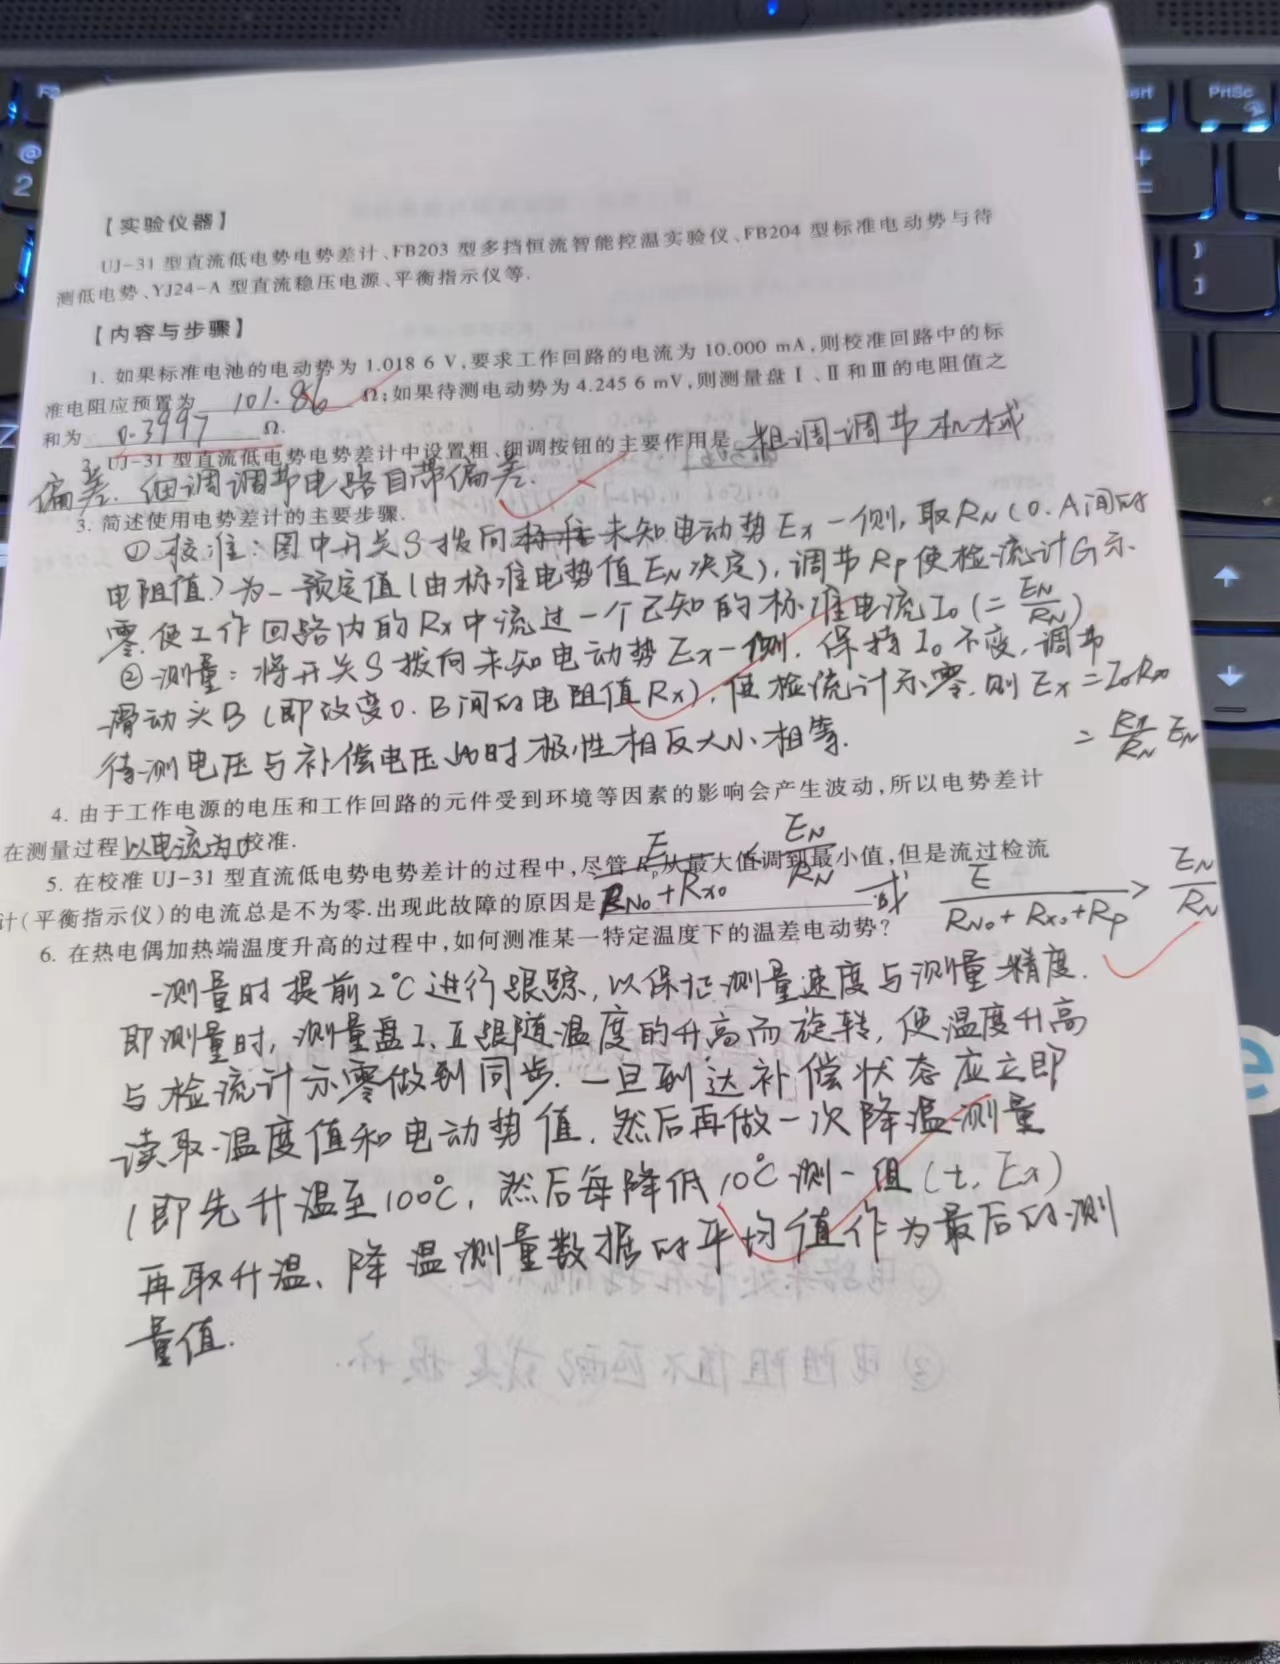 【实验仪器】
UJ-31 型直流低电势电势差计、FB203 型多挡恒流智能控温实验仪、FB204 型标准电动势与待
测低电势、YJ24-A 型直流稳压电源、平衡指示仪等.
【内容与步骤】
1. 如果标准电池的电动势为 1.018 6 V,要求工作回路的电流为 10.000 mA,则校准回路中的标
准电阻应预置为 101.86 Ω;如果待测电动势为 4.245 6 mV,则测量盘Ⅰ、Ⅱ和Ⅲ的电阻值之
和为 0.3997 Ω.
2. UJ-31 型直流低电势电势差计中设置粗、细调按钮的主要作用是 粗调调节机械
偏差. 细调调节电路自带偏差.
3. 简述使用电势差计的主要步骤.
①校准:图中开关S拨向未知电动势Ex一侧,取RN(O.A间的
电阻值)为一预定值(由标准电势值EN决定),调节Rp使检流计G示
零,使工作回路内的Rx中流过一个已知的标准电流I₀(=EN/RN)
②测量:将开关S拨向未知电动势Ex一侧.保持I₀不变,调节
滑动头B(即改变O.B间的电阻值Rx),使检流计示零.则Ex=I₀Rx
=Rx/RN EN
待测电压与补偿电压此时极性相反大小相等.
4. 由于工作电源的电压和工作回路的元件受到环境等因素的影响会产生波动,所以电势差计
在测量过程以电流为0校准.
5. 在校准 UJ-31 型直流低电势电势差计的过程中,尽管 Rp从最大值调到最小值,但是流过检流
计(平衡指示仪)的电流总是不为零.出现此故障的原因是 E/(RN₀+Rx₀) < EN/RN 或 E/(RN₀+Rx₀+Rp) > EN/RN
6. 在热电偶加热端温度升高的过程中,如何测准某一特定温度下的温差电动势?
测量时提前2℃进行跟踪,以保证测量速度与测量精度.
即测量时,测量盘I、II跟随温度的升高而旋转,使温度升高
与检流计示零做到同步.一旦到达补偿状态应立即
读取温度值和电动势值.然后再做一次降温测量
(即先升温至100℃,然后每降低10℃测一组(t,Ex)
再取升温、降温测量数据的平均值作为最后的测
量值.